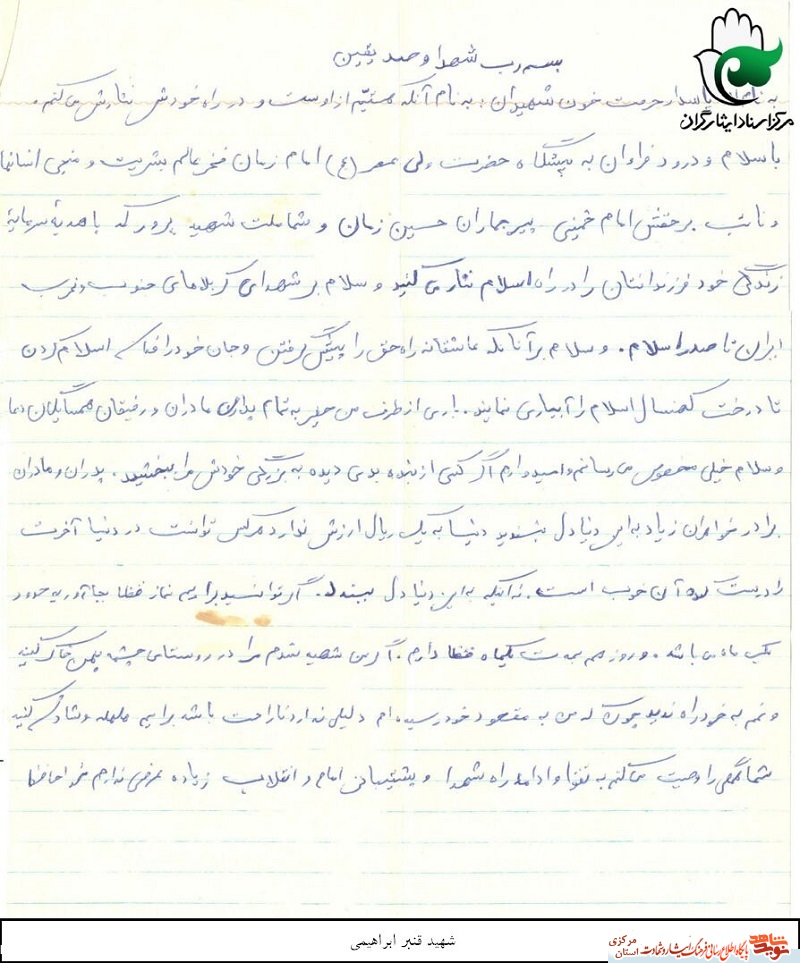 بسم رب شهدا و صدیقین
مرکز اسناد ایثارگران
به نام پاسدار حرمت خون شهیدان، به نام آنکه هستیم از اوست و در راه خودش نثارش می کنم
با سلام و درود فراوان به پیشگاه حضرت ولی عصر (عج) امام زمان فخر عالم بشریت و منجی انسانها
و نائب بر حقش امام خمینی پیر جماران حسین زمان و شما ملت شهید پرور که با هدیهٔ سرمایهٔ
زندگی خود فرزندانتان را در راه اسلام نثار می کنید و سلام بر شهدای کربلاهای جنوب و غرب
ایران تا صدر اسلام. و سلام بر آنانکه عاشقانه راه حق را پیش گرفتن و جان خود را فدای اسلام کردن
تا درخت کهنسال اسلام را آبیاری نمایند. باری از طرف من حقیر به تمام پدران مادران و رفیقان همسایگان دعا
و سلام خیلی مخصوص می رسانم و امیدوارم اگر کسی از بنده بدی دیده به بزرگی خودش مرا ببخشید. پدران و مادران
برادر خواهران زیاد به این دنیا دل نبندید دنیا به یک ریال ارزش ندارد هرکس توانست در دنیا آخرت
را درست کند آن خوب است. نه اینکه به این دنیا دل ببندد. اگر توانستید برایم نماز قضا بجا آورید حدود
یک ماه می باشد. و روزه هم به مدت یکماه قضا دارم. اگر من شهید شدم مرا در روستای چشمه خاک کنید
و غم به خود راه ندهید چون که من به مقصود خود رسیده ام دلیلی ندارد ناراحت باشد برایم هلهله و شادی کنید
شما همگی را وصیت می کنم به تقوا و ادامه راه شهدا و پشتیبانی امام و انقلاب زیاده عرضی ندارم خداحافظ
شهید قنبر ابراهیمی
نوید شاهد
پایگاه اطلاع رسانی فرهنگ ایثار و شهادت استان مرکزی